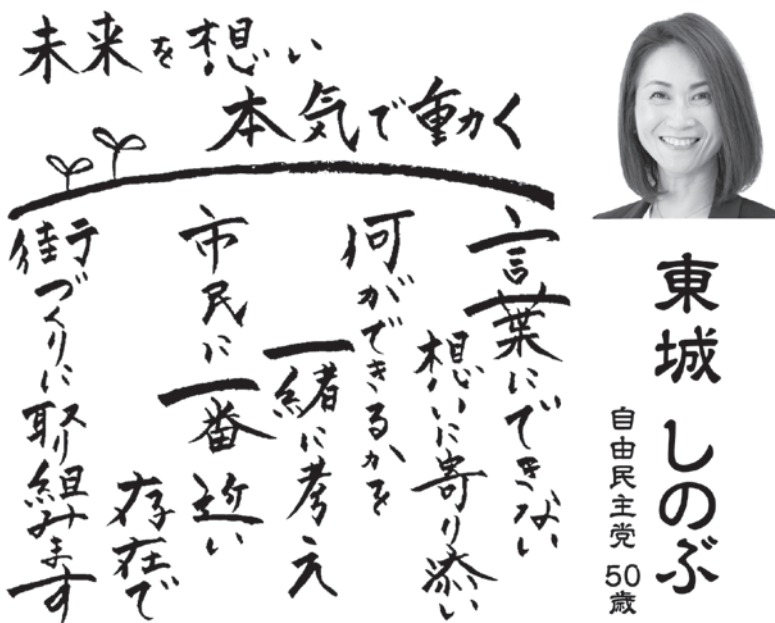 未来を想い
本気で動く
言葉にできない
想いに寄り添い
何ができるかを
一緒に考え
市民に一番近い
存在で
街づくりに取り組みます
東城 しのぶ
自由民主党 50歳